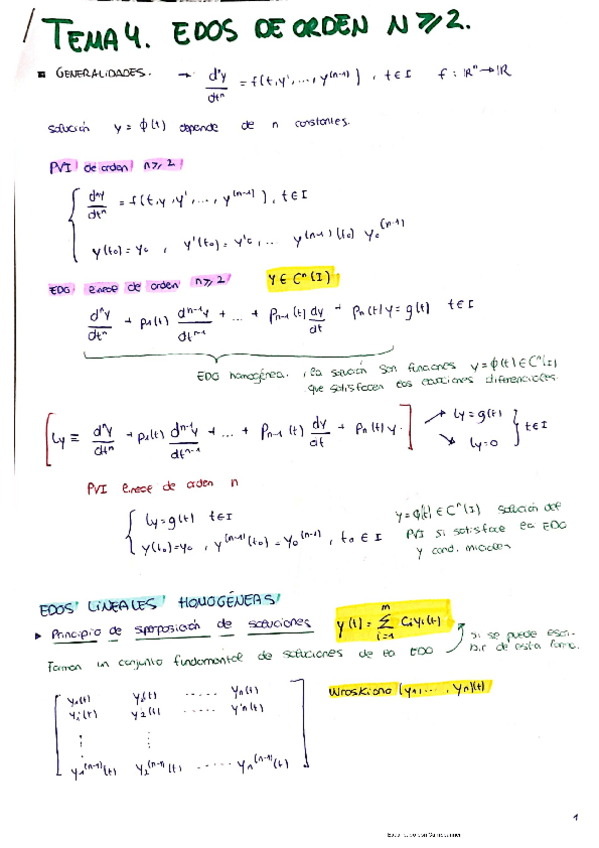 TEMA 4. EDOS DE ORDEN N ≥ 2.
GENERALIDADES. → dⁿy/dtⁿ = f(t, y', ..., y⁽ⁿ⁻¹⁾), t ∈ I f: ℝⁿ → ℝ
Solución y = ϕ(t) depende de n constantes.
PVI de orden n ≥ 2
dⁿy/dtⁿ = f(t, y, y', ..., y⁽ⁿ⁻¹⁾), t ∈ I
y(t₀) = y₀, y'(t₀) = y'₀, ... y⁽ⁿ⁻¹⁾(t₀) y₀⁽ⁿ⁻¹⁾
EDO lineal de orden n ≥ 2 y ∈ Cⁿ(I)
dⁿy/dtⁿ + p₁(t) dⁿ⁻¹y/dtⁿ⁻¹ + ... + pₙ₋₁(t) dy/dt + pₙ(t) y = g(t) t ∈ I
EDO homogénea. la solución son funciones y = ϕ(t) ∈ Cⁿ(I)
que satisfacen las ecuaciones diferenciales.
Ly ≡ dⁿy/dtⁿ + p₁(t) dⁿ⁻¹y/dtⁿ⁻¹ + ... + pₙ₋₁(t) dy/dt + pₙ(t) y. ↗ Ly = g(t) ↘ Ly = 0 } t ∈ I
PVI lineal de orden n
Ly = g(t) t ∈ I
y(t₀) = y₀, y⁽ⁿ⁻¹⁾(t₀) = y₀⁽ⁿ⁻¹⁾, t₀ ∈ I
y = ϕ(t) ∈ Cⁿ(I) solución del
PVI si satisface la EDO
y cond. iniciales
EDOS LINEALES HOMOGÉNEAS
► Principio de sporposición de soluciones y(t) = Σᵢ₌₁ᵐ Cᵢyᵢ(t) si se puede escri-
bir de esta forma.
Forman un conjunto fundamental de soluciones de la EDO
y₁(t) y₂(t) ..... yₙ(t)
y₁'(t) y₂'(t) ..... y'ₙ(t)
⋮ ⋮
y₁⁽ⁿ⁻¹⁾(t) y₂⁽ⁿ⁻¹⁾(t) ..... yₙ⁽ⁿ⁻¹⁾(t)
Wroskiano (y₁, ..., yₙ)(t)
1